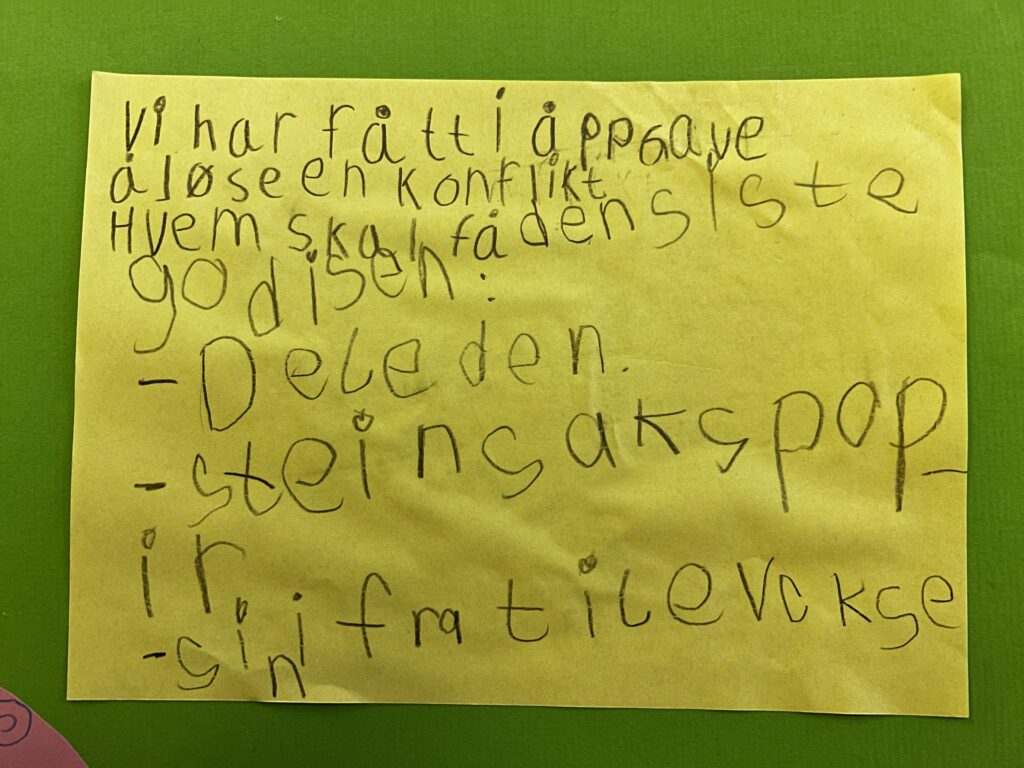 Vi har fått i åppgave
å løse en konflikt
Hvem skal få den siste
godisen:
- Dele den.
- stein saks pop-
ir.
- si ni fra til evokse